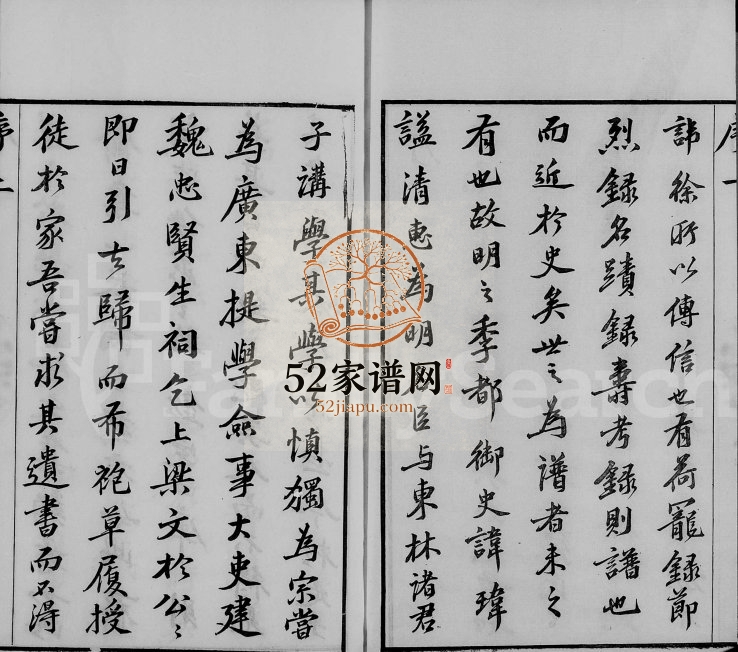 序一
諱徐所以傳信也有荷寵録節
烈録名蹟録壽考録則譜也
而近於史矣世之為譜者未之
有也故明之季都御史諱瑋
諡清惠為明臣与東林諸君
子講學其學以慎獨為宗嘗
為廣東提學僉事大吏建
魏忠賢生祠乞上梁文於公〻
即日引去歸而布袍草履授
徒於家吾嘗求其遺書而不得
序二
52家谱网
52jiapu.com
FamilySearch